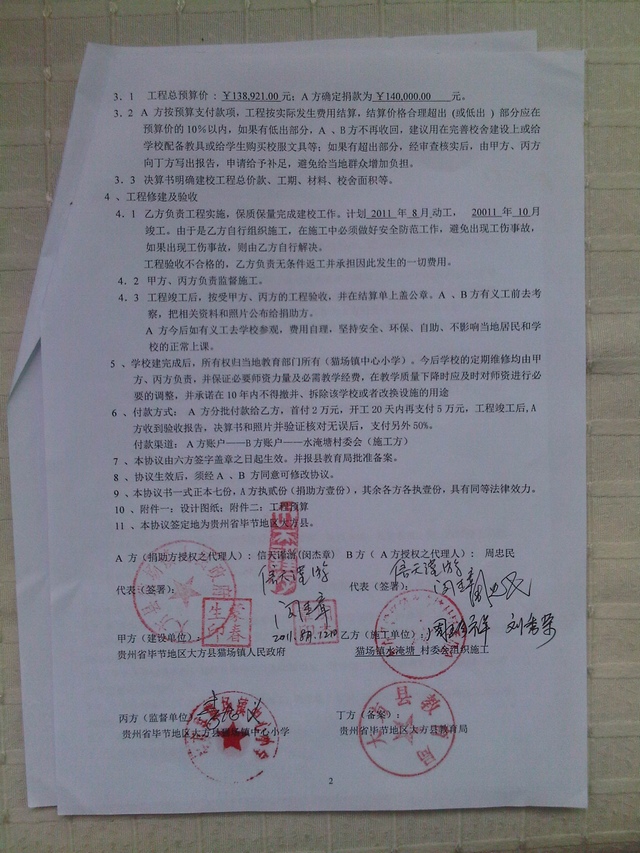 3．1 工程总预算价：￥138,921.00元；A方确定捐款为￥140,000.00 元。
3．2 A方按预算支付款项，工程按实际发生费用结算，结算价格合理超出（或低出）部分应在
预算价的10%以内，如果有低出部分，A、B方不再收回，建议用在完善校舍建设上或给
学校配备教具或给学生购买校服文具等；如果有超出部分，经审查核实后，由甲方、丙方
向丁方写出报告，申请给予补足，避免给当地群众增加负担。
3．3 决算书明确建校工程总价款、工期、材料、校舍面积等。
4、工程修建及验收
4．1 乙方负责工程实施，保质保量完成建校工作。计划 2011 年 8 月动工， 20011 年 10 月
竣工。由于是乙方自行组织施工，在施工中必须做好安全防范工作，避免出现工伤事故，
如果出现工伤事故，则由乙方自行解决。
工程验收不合格的，乙方负责无条件返工并承担因此发生的一切费用。
4．2 甲方、丙方负责监督施工。
4．3 工程竣工后，按受甲方、丙方的工程验收，并在结算单上盖公章。A、B方有义工前去考
察，把相关资料和照片公布给捐助方。
A方今后如有义工去学校参观，费用自理，坚持安全、环保、自助、不影响当地居民和学
校的正常上课。
5、学校建完成后，所有权归当地教育部门所有（猫场镇中心小学）。今后学校的定期维修均由甲
方、丙方负责，并保证必要师资力量及必需教学经费，在教学质量下降时应及时对师资进行必
要的调整，并承诺在10年内不得撤并、拆除该学校或者改换设施的用途
6、付款方式： A方分批付款给乙方，首付2万元，开工20天内再支付5万元，工程竣工后，A
方收到验收报告，决算书和照片并验证核对无误后，支付另外50%。
付款渠道： A方账户——B方账户——水淹塘村委会（施工方）
7、本协议由六方签字盖章之日起生效。并报县教育局批准备案。
8、协议生效后，须经A、B方同意可修改协议。
9、本协议书一式正本七份，A方执贰份（捐助方壹份），其余各方各执壹份，具有同等法律效力。
10、附件一：设计图纸；附件二：工程预算
11、本协议签定地为贵州省毕节地区大方县。
A方（捐助方授权之代理人）：信天谨游(闵杰章) B方（A方授权之代理人）： 周忠民
信天谨游 信天谨游
代表（签署）： 代表（签署）：
闵杰章 闵杰章 周忠民
甲方（建设单位）： 乙方（施工单位）：
贵州省毕节地区大方县猫场镇人民政府 猫场镇水淹塘 村委会组织施工
丙方（监督单位） 丁方（备案）：
贵州省毕节地区大方县猫场镇中心小学 贵州省毕节地区大方县教育局
2